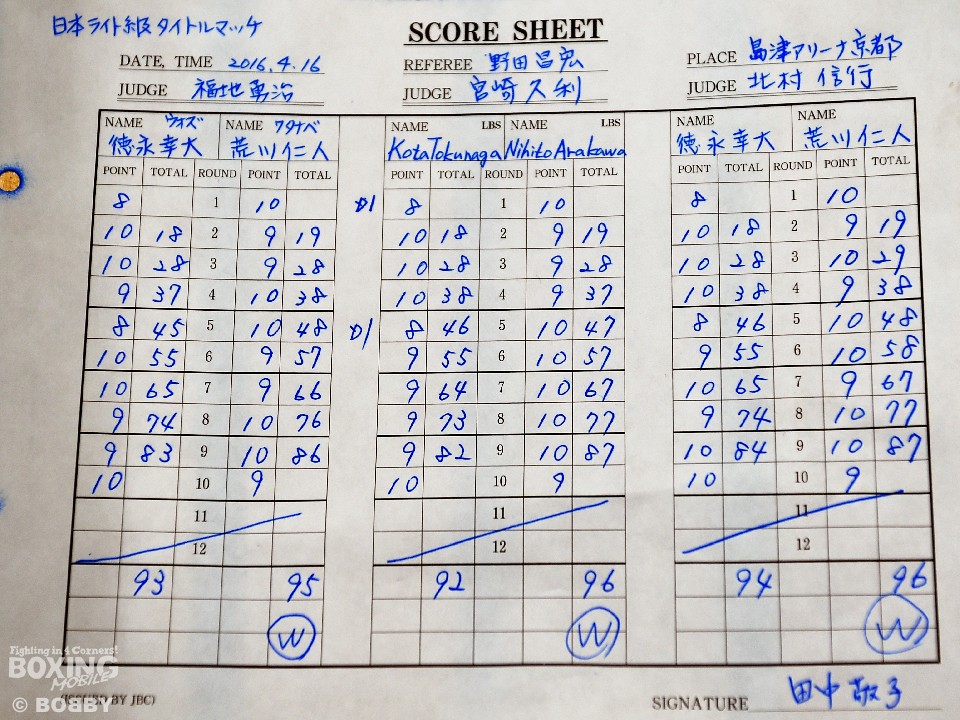 日本ライト級タイトルマッチ
SCORE SHEET
DATE, TIME 2016.4.16 REFEREE 野田昌宏 PLACE 島津アリーナ京都
JUDGE 福地勇治 JUDGE 宮崎久利 JUDGE 北村信行
NAME ウォズ NAME ワタナベ NAME LBS NAME LBS NAME NAME
徳永幸大 荒川仁人 Kota Tokunaga Nihito Arakawa 徳永幸大 荒川仁人
POINT TOTAL ROUND POINT TOTAL POINT TOTAL ROUND POINT TOTAL POINT TOTAL ROUND POINT TOTAL
8 1 10 D1 8 1 10 8 1 10
10 18 2 9 19 10 18 2 9 19 10 18 2 9 19
10 28 3 9 28 10 28 3 9 28 10 28 3 10 29
9 37 4 10 38 10 38 4 9 37 10 38 4 9 38
8 45 5 10 48 D1 8 46 5 10 47 8 46 5 10 48
10 55 6 9 57 9 55 6 10 57 9 55 6 10 58
10 65 7 9 66 9 64 7 10 67 10 65 7 9 67
9 74 8 10 76 9 73 8 10 77 9 74 8 10 77
9 83 9 10 86 9 82 9 10 87 10 84 9 10 87
10 10 9 10 10 9 10 10 9
11 11 11
12 12 12
93 95 92 96 94 96
W W W
Fighting in 4 Corners!
BOXING
MOBILE
(ISSUED BY JBC)
© BOBBY
SIGNATURE 田中敬子